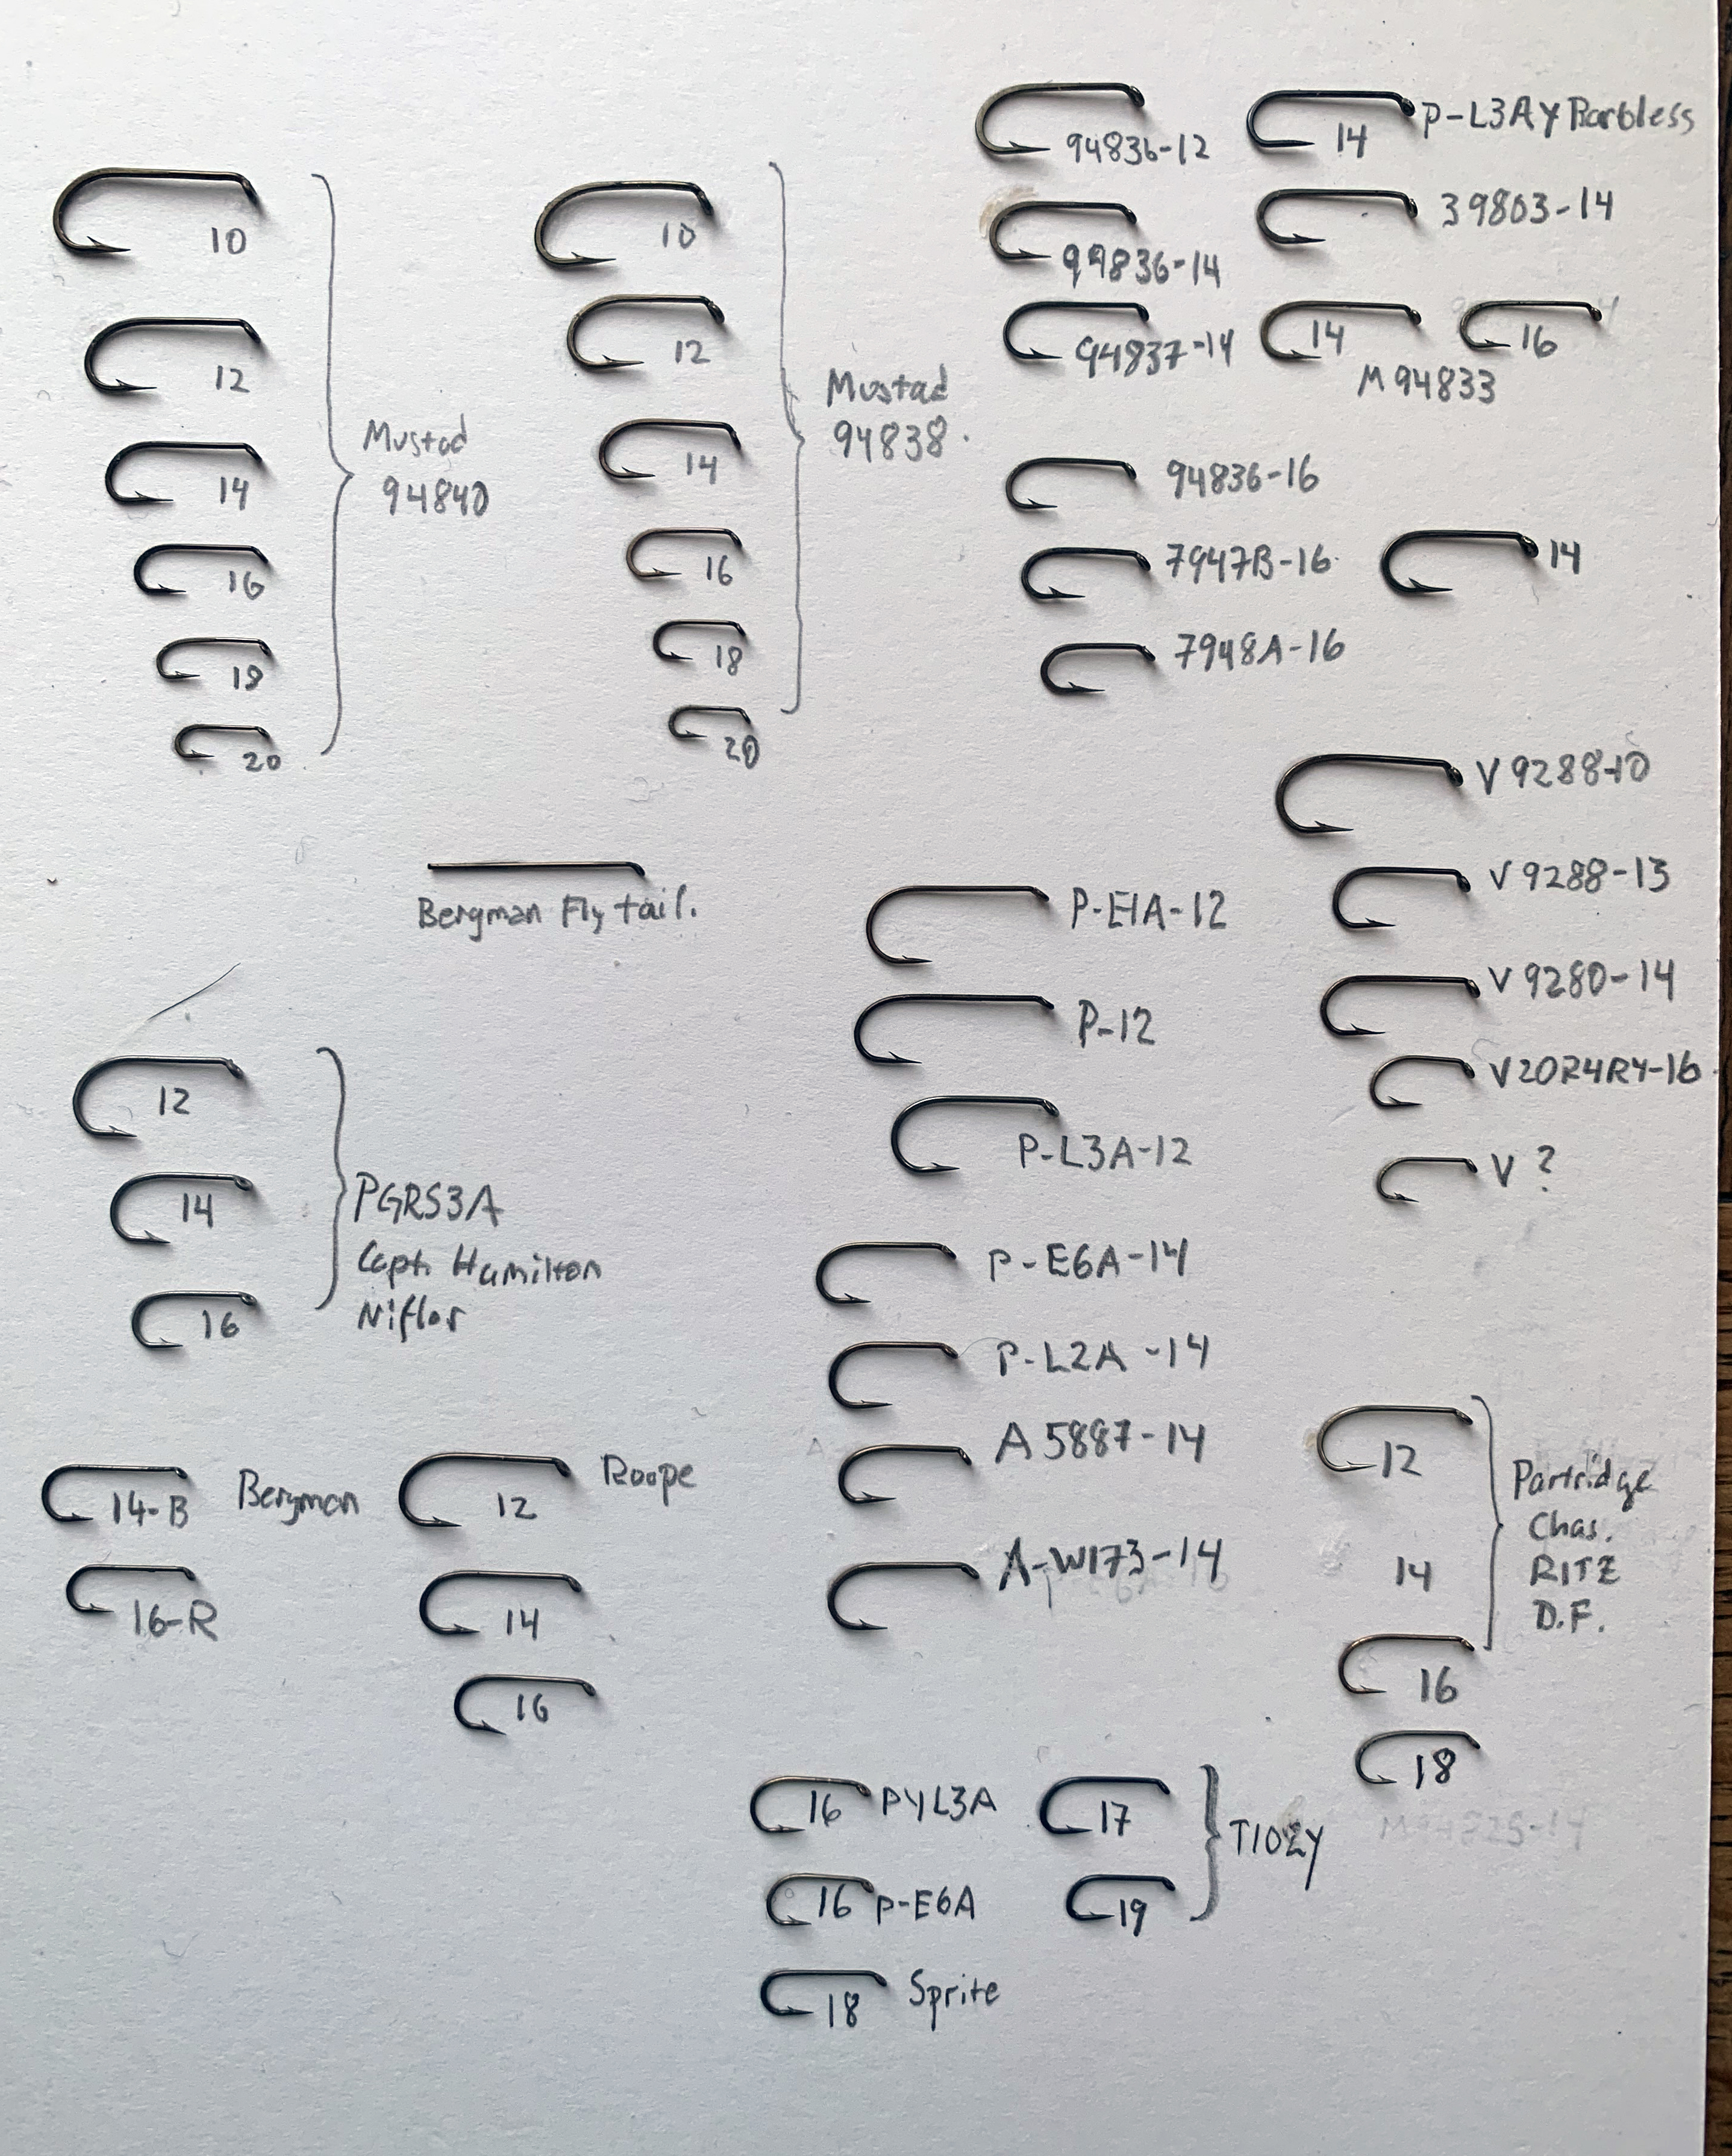 10
12
14
16
18
20
Mustad
94840
10
12
14
16
18
20
Mustad
94838.
94836-12
99836-14
94837-14
14 P-L3AY Barbless
39803-14
14
16
M94833
94836-16
7947B-16
7948A-16
14
V 9288-10
V 9288-13
V 9280-14
V20R4RY-16
V ?
Bergman Fly tail.
P-E1A-12
P-12
P-L3A-12
P-E6A-14
P-L2A-14
A 5887-14
A-W173-14
12
14
16
PGRS3A
Capt. Hamilton
Niflor
14-B Bergman
16-R
12 Roope
14
16
12
14
16
18
Partridge
Chas.
RITZ
D.F.
16 PYL3A
16 P-E6A
18 Sprite
17
19
T102Y